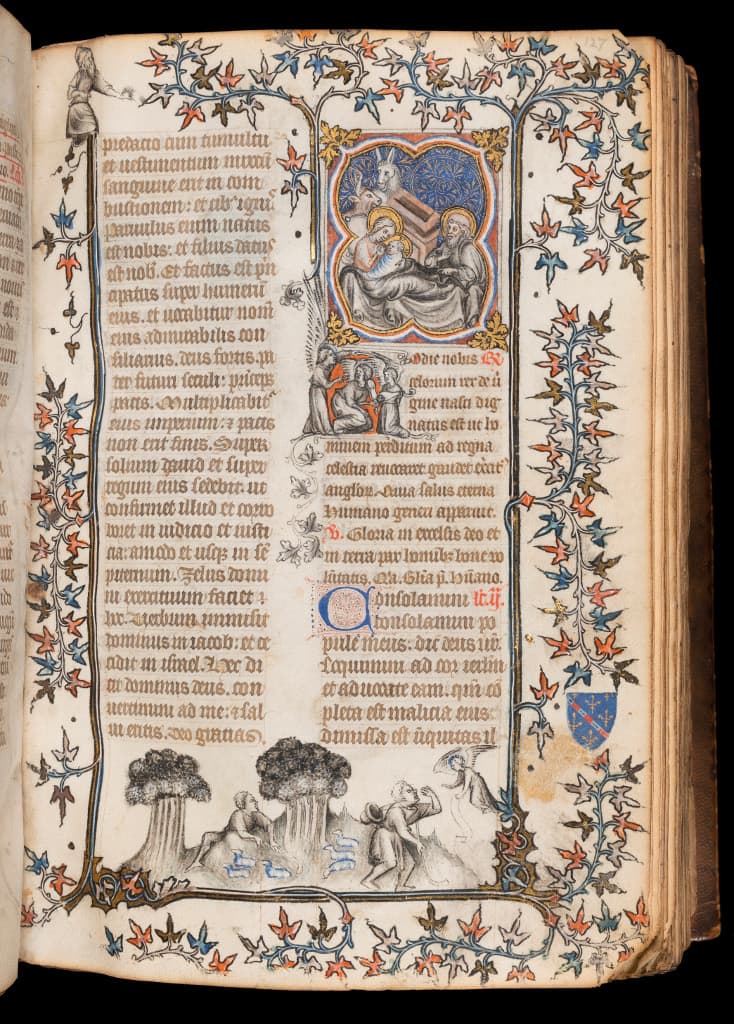 127
predacio cum tumultu
et uestimentum mixtū
sanguine erit in com
bustionem: et cib⁹ ignis
paruulus enim natus
est nobis: et filius datus
est nob. Et factus est p̄n
cipatus super humerū
eius. et uocabitur nom̄
eius admirabilis con
siliarius. deus fortis. pa
ter futuri seculi: princeps
pacis. Multiplicabit᷑
eius imperium: ⁊ pacis
non erit finis. Super
solium dauid et super
regnum eius sedebit: ut
confirmet illud et corro
boret in iudicio et iusti
cia: amodo et usq; in se
piternum. Zelus domi
ni exercituum faciet ⁊
hec. Verbum immisit
dominus in iacob: et ce
cidit in israel. Hec di
cit dominus deus. con
uertimini ad me: ⁊ sal
ui eritis. Deo gracias
Hodie nobis
celorum rex de ū
gine nasci dig
natus est ut ho
minem perditum ad regna
celestia reuocaret gaudet exercit᷑
anglorꝝ. Quia salus eterna
humano generi apparuit.
℣. Gloria in excelsis deo et
in terra pax homībꝰ bone uo
lūtatis. Qa. Glīa p̄. Hūano.
Consolamini lc̄. ij.
Consolamini po
pule meus: dic̄ deus ur̄.
Loquimini ad cor ierlm̄
et aduocate eam. qm̄ cō
pleta est malicia eius:
dimissa est iniquitas il